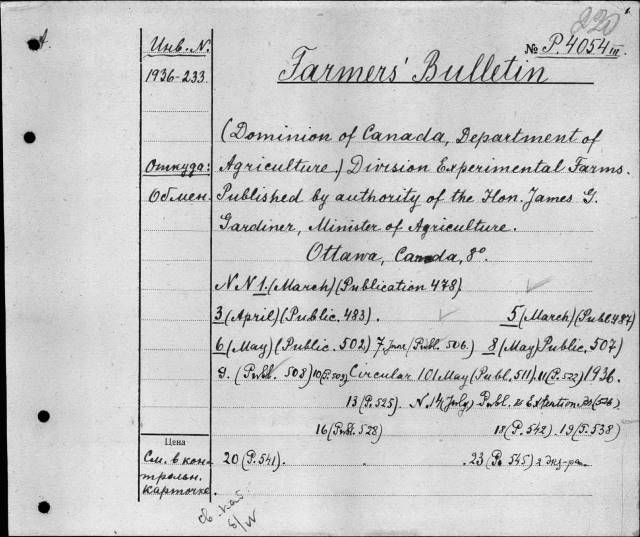 220
№ P. 4054 III.
Инв. N.
1936-233.
Farmers' Bulletin
(Dominion of Canada, Department of
Откуда: Agriculture.) Division Experimental Farms.
Обмен. Published by authority of the Hon. James G.
Gardiner, Minister of Agriculture.
Ottawa, Canada, 8°.
NN 1. (March) (Publication 478)
3 (April) (Public. 483). 5 (March) (Publ. 487)
6 (May) (Public. 502) 7 June (Publ. 506.) 8 (May) Public. 507)
9. (Publ. 508) 10 (P. 509) Circular 101 May (Publ. 511). 11 (P. 522) 1936.
13 (P. 525). N. 14 (July) Publ. (526)
16 (Publ. 528) 18 (P. 542). 19 (P. 538)
Цена
См. в кон-
трольн.
карточке.
20 (P. 541). 23 (P. 545) 2 экз-ра.